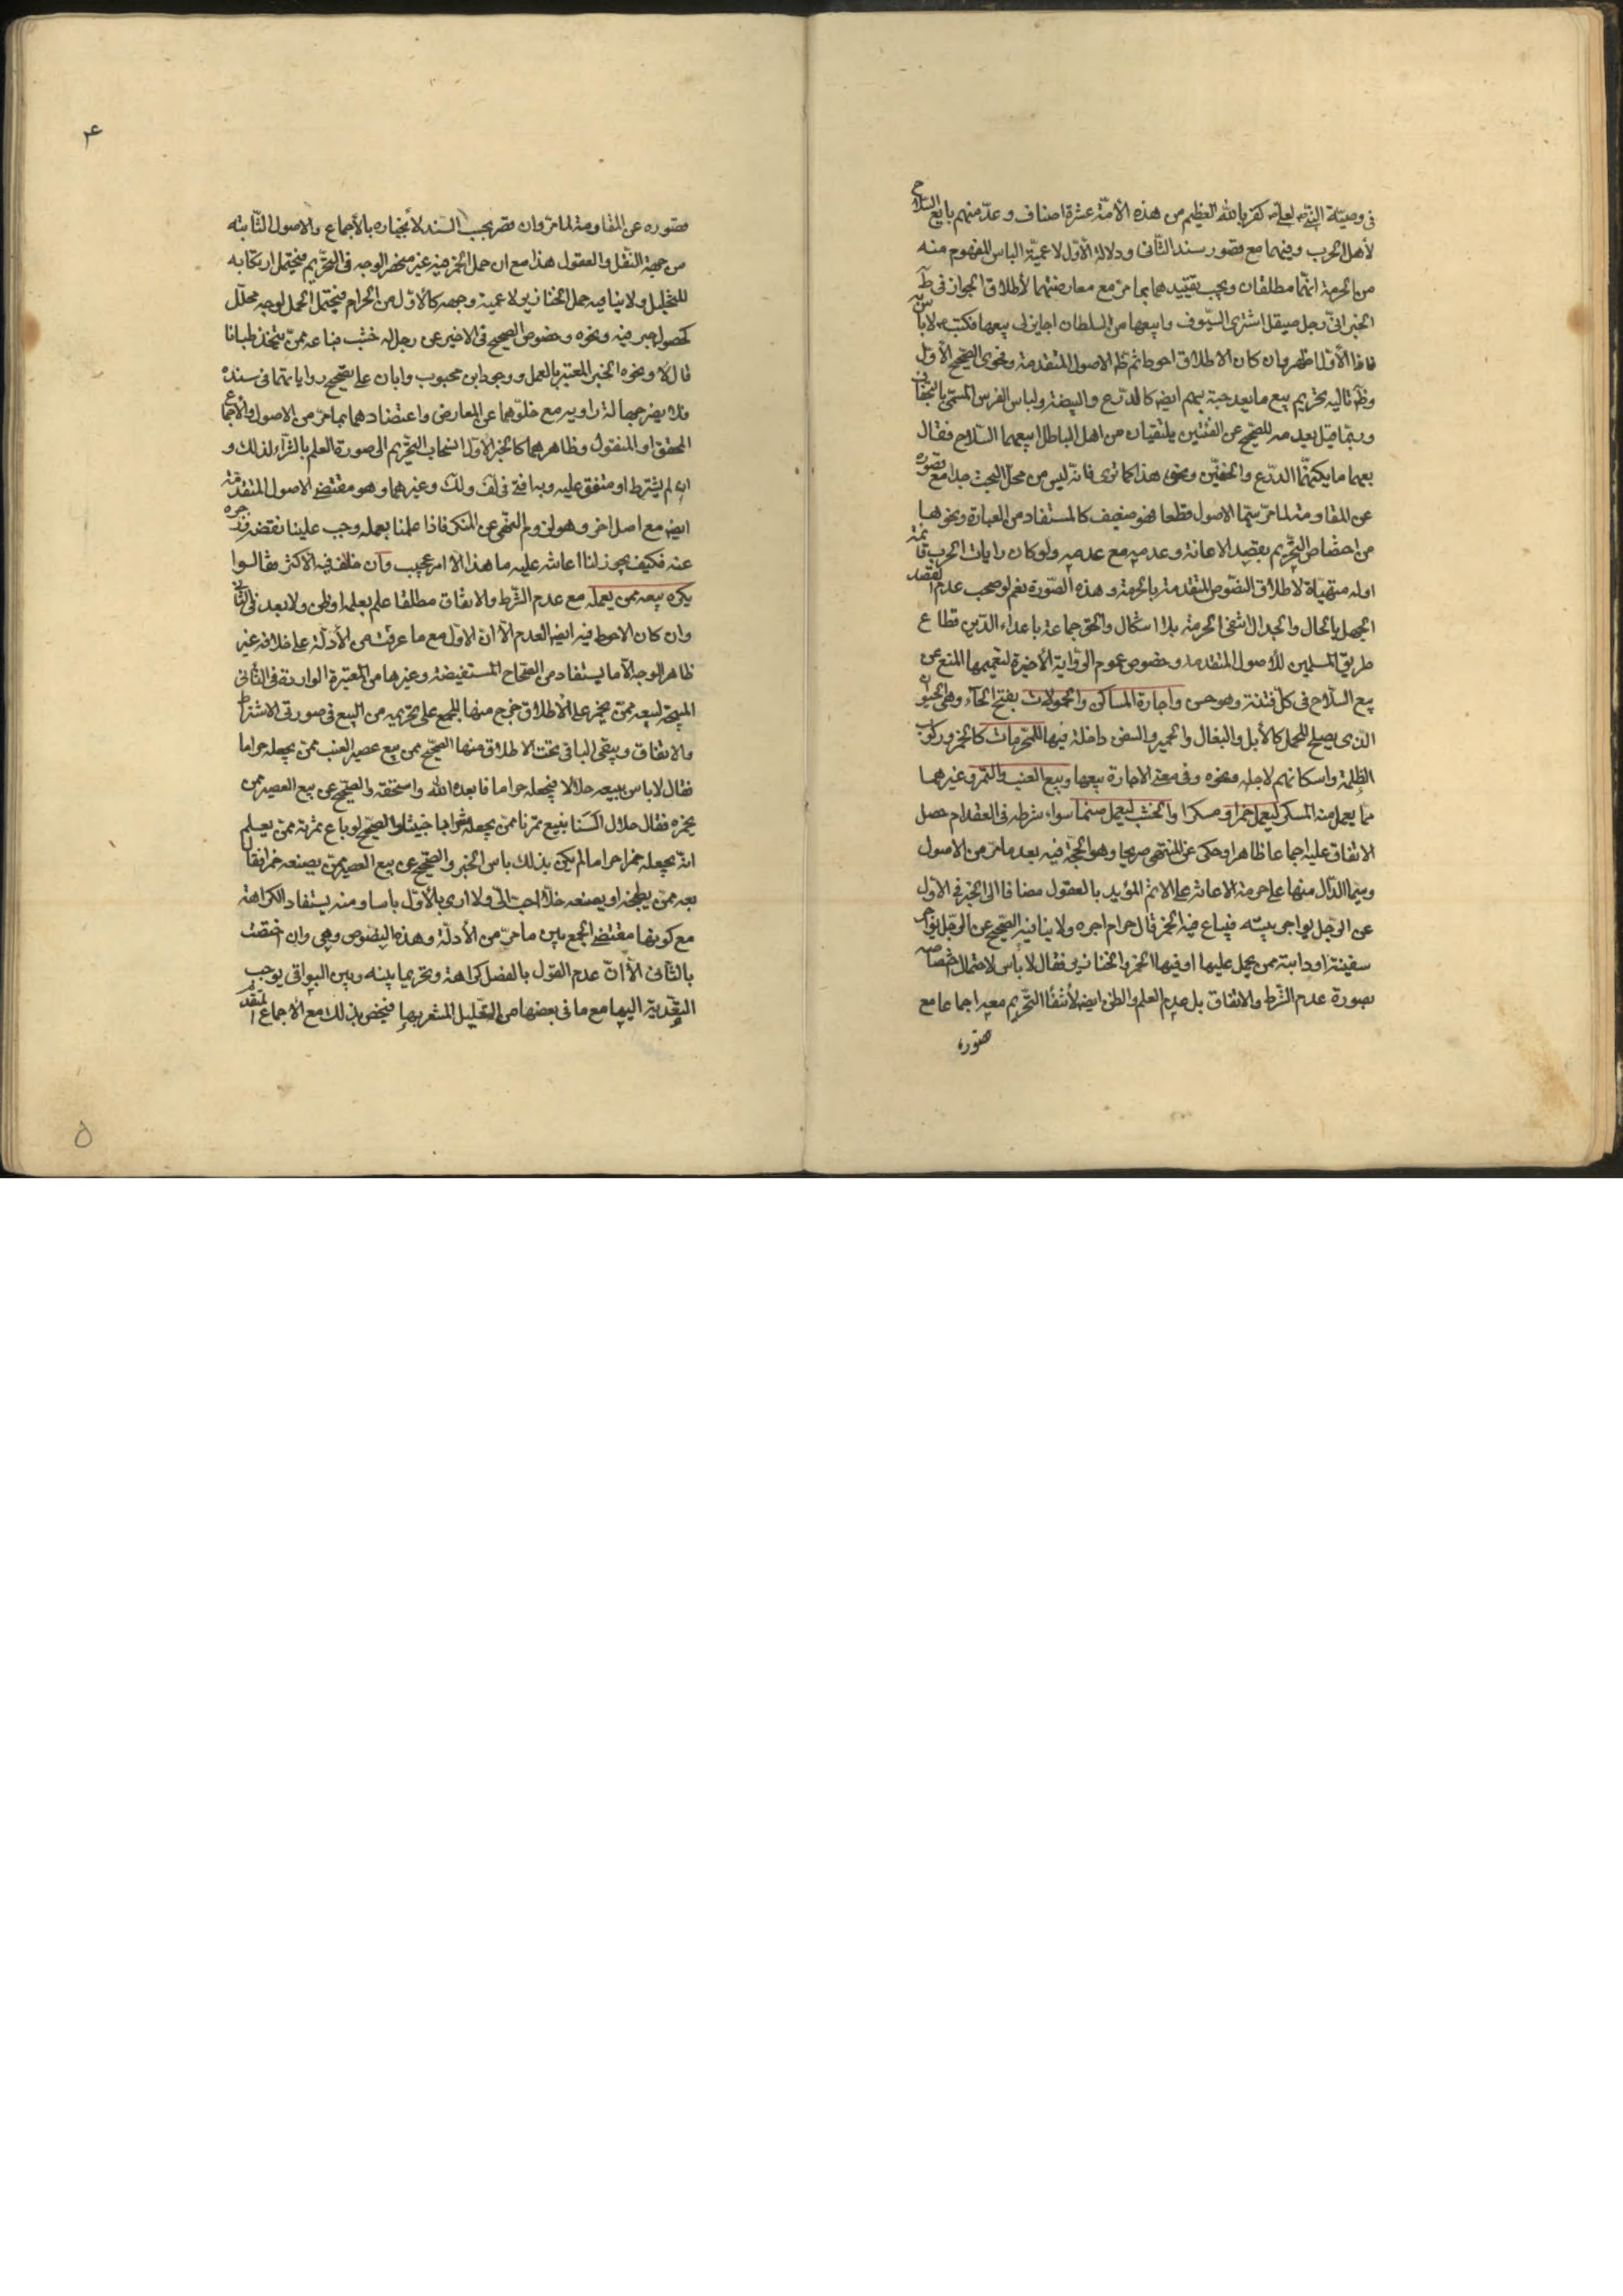 في وصيّة النبيّ ص لعليّ ع كفر بالله العظيم من هذه الأمّة عشرة اصناف وعدّ منهم بايع السّلاح
لأهل الحرب وفيهما مع قصور سند الثّاني ودلالة الأوّل لاعميّة الباس المفهوم منه
من الحرمة انّهما مطلقان ويجب تقييدهما بما مرّ مع معارضتهما لأطلاق الجواز في ظ
الخبر انّي رجل صيقل اشتري السّيوف وابيعها من السلطان اجايز لي بيعها فكتب ع لا باس به
فاذا الأوّل اظهر وان كان الاطلاق احوط ثم ظ الاصول المتقدمة وفحوى الصّحيح الأوّل
وظ تاليه تحريم بيع ما يعد جنة لهم ايض كالدّرع والبيضة ولباس الفرس المسمّى بالتجفاف
وربّما قيل بعدمه للصّحيح عن الفئتين يلتقيان من اهل الباطل ابيعهما السّلاح فقال
بعهما ما يكنّهما الدّرع والخفّين ونحو هذا كما ترى فانّه ليس من محلّ البحث جدا مع قصوره
عن المقاومة لما مرّ سيّما الاصول قطعا فهو ضعيف كالمستفاد من العبارة ونحوها
من اختصاص التّحريم بقصد الاعانة وعدمه مع عدمه ولو كان رايات الحرب قائمة
او له متهيّاة لاطلاق النّصوص المتقدمة بالحرمة وهذه الصّورة نعم لو صحب عدم القصد
الجهل بالحال والجدال انتفى الحرمة بلا اشكال والحق جماعة باعداء الدّين قطاع
طريق المسلمين للأصول المتقدمة وخصوص عموم الرّواية الأخيرة لتعميمها المنع عن
بيع السّلاح في كلّ فتنة وهو حسن واجارة المساكن والحمولات بفتح الحاء وهي الحيوان
الذي يصلح للحمل كالأبل والبغال والحمير والسفن داخلة فيها للمحّرمات كالخمر وركوب
الظلمة واسكانهم لاجله ونحوه وفي معنى الاجارة بيعها وبيع العنب والتمر وغيرهما
ممّا يعمل منه المسكر ليعمل خمرا او مسكرا والخشب ليعمل صنما سواء شرطه في العقد ام حصل
الاتفاق عليه اجماعا ظاهرا وحكي عن المنتهى صريحا وهو الحجّة فيه بعد ما مرّ من الاصول
وسيّما الدّال منها على حرمة الاعانة على الاثم المؤيد بالعقول مضافا الى الخبر في الأوّل
عن الرّجل يواجر بيته فيباع فيه الخمر قال حرام اجره ولا ينافيه الصّحيح عن الرّجل يواجر
سفينته او دابته ممن يحمل عليها او فيها الخمر والخنازير فقال لا بأس لاحتمال اختصاصه
بصورة عدم الشّرط والاتفاق بل عدم العلم والظن ايض لانتفاء التّحريم معه اجماعا مع
قصوره
٤
قصوره عن المقاومة لما مرّ وان قصر بحسب السّند لانجباره بالأجماع والاصول الثّابته
من جهة النّقل والعقول هذا مع ان حمل الخمر فيه غير منحصر الوجه في التّحريم فيحتمل ارتكابه
للتخليل ولا ينافيه حمل الخنازير لاعمية وجهه كالأوّل من الحرام فيحتمل الحمل لوجه محلّل
كحصول جبر فيه ونحوه وخصوص الصّحيح في الاخير عن رجل له خشب فباعه ممّن يتّخذ صلبانا
قال لا ونحوه الخبر المعتبر بالعمل ووجود ابن محبوب وابان على تصحيح رواياتهما في سنده
فلا يضر جهالة راويه مع خلوّهما عن المعارض واعتضادهما بما مرّ من الاصول والاجماع
المحقق او المنقول وظاهرهما كالخبر الأوّل انسحاب التّحريم الى صورة العلم بالشّراء لذلك و
ان لم يشترط او متفق عليه وبه افتى في لف ولك وغيرهما وهو مقتضى الاصول المتقدّمة
ايض مع اصل اخر وهو لزوم النّهي عن المنكر فاذا علمنا بعمله وجب علينا نقضه وزجره
عنه فكيف يجوز لنا اعانته عليه ما هذا الّا امر عجيب وان خالف فيه الأكثر فقالوا
يكره بيعه ممن يعمله مع عدم الشّرط والاتفاق مطلقا علم بعمله او ظن ولا بعد في الثّاني
وان كان الاحوط فيه ايض العدم الّا انّ الاوّل مع ما عرفت من الأدلّة على خلافه غير
ظاهر الوجه الّا ما يستفاد من الصّحاح المستفيضة وغيرها من المعتبرة الواردة في الثّاني
المبيحة لبيعه ممّن يخمر على الأطلاق خرج منها للجمع على تحريمه من البيع في صورتي الاشتراط
والاتفاق ويبقى الباقي تحت الاطلاق منها الصّحيح عن بيع عصير العنب ممّن يجعله حراما
فقال لا باس ببيعه حلالا فيجعله حراما فابعده الله واسحقه والصّحيح عن بيع العصير ممن
يخمره فقال حلال السنا نبيع تمرنا ممن يجعله شرابا خبيثا والصّحيح لو باع ثمرته ممن يعلم
انّه يجعله خمرا حراما لم يكن بذلك باس الخبر والصّحيح عن بيع العصير ممّن يصنعه خمرا فقال
بعه ممّن يطبخه او يصنعه خلّا احبّ الّي ولا ارى بالأوّل باسا ومنه يستفاد الكراهة
مع كونها مقتضى الجمع بين ما مرّ من الأدلّة وهذه النّصوص وهي وان اختصّت
بالثّاني الّا انّ عدم القول بالفصل كراهة وتحريما بينه وبين البواقي يوجب
التّعدية اليها مع ما في بعضها من التّعليل المشعر بها فيخصّ بذلك مع الأجماع المتقدّم
٥